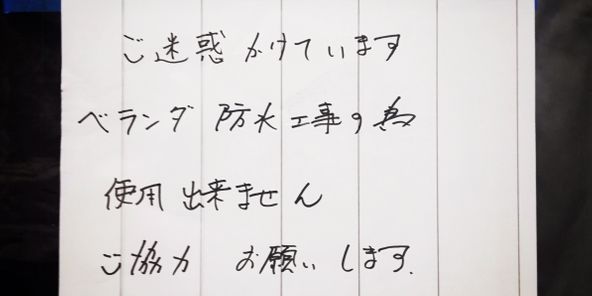 ご迷惑かけています
ベランダ 防水工事の為
使用出来ません
ご協力 お願いします.